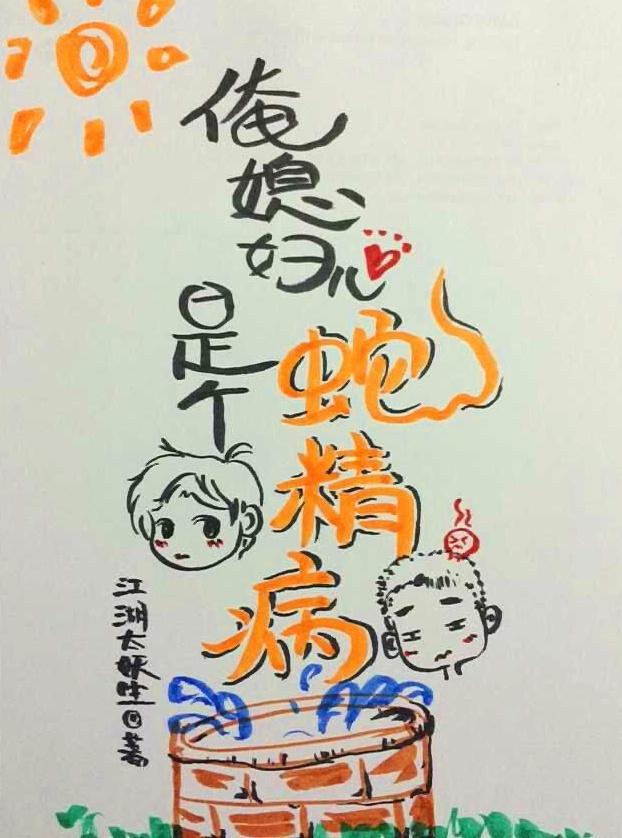 俺媳妇儿
是个
蛇精病
江湖太妖 著